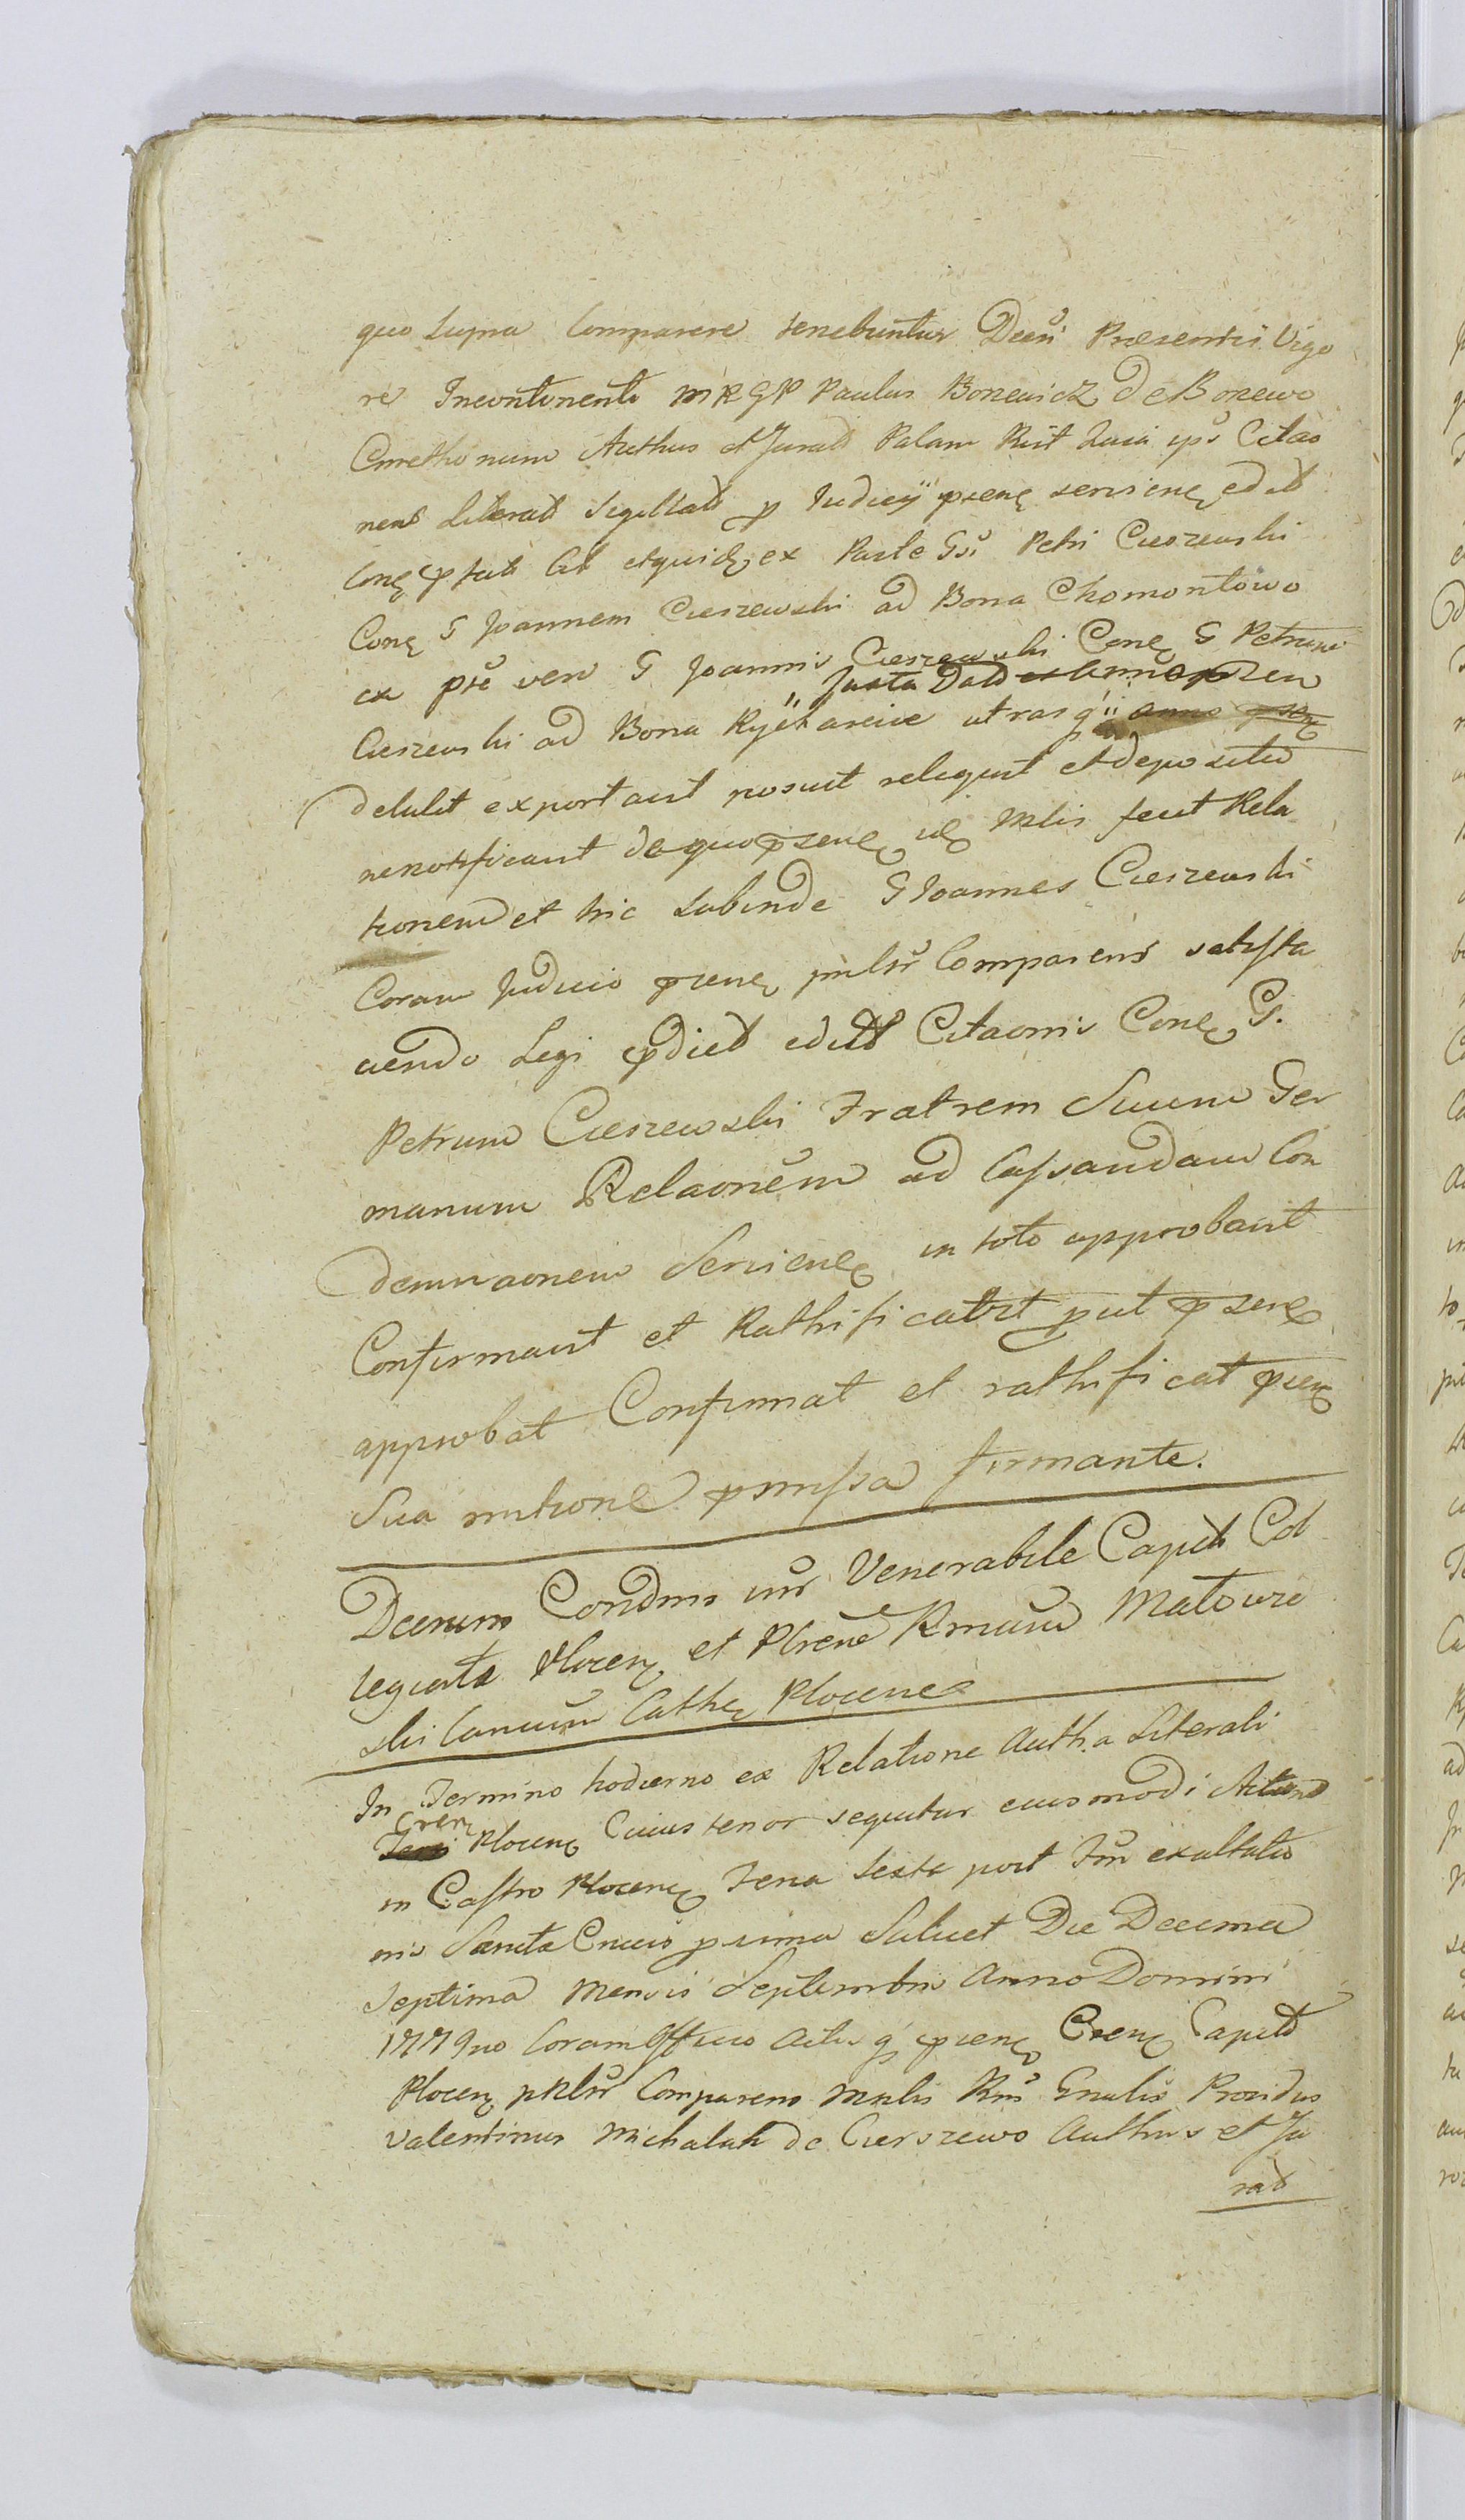 quo supra Comparere tenebuntur Decti Praesentis Vigo
re Incontinenti MRGP Paulus Bonewicz de Bonewo
Cmethonum Authus et Jurad Palam Rit quia ips Citao
nem Literad Sigillad p Judicij psenę servienę edit
Conę ptat Cit et quidę ex Parte Gsi Petri Cieszewski
Conę G Joannem Cieszewski ad Bona Chomontowo
ex pte vero G Joannis Cieszewski Conę G Petrum
Juxta Datd
Cieszewski ad Bona Rycharcice utrasq anno psenę
detulit exportavit posuit reliquit et depositio
nenotificavit de quo psenę Mlis fecit Rela
tionem et hic Subinde G Joannes Cieszewski
Coram Judicio psenę pnlr Comparens satisfa
ciendo Legi pdict edit Citaonis Conę G.
Petrum Cieszewski Fratrem Suum Ger
manum Relaonem ad Cassandam Con
demnaonem Servienę in toto approbavit
Confirmavit et Rathificavit put psenę
approbat Confirmat et rathificat psenę
Sua mtione pmissa firmante.
Decrum Condnis inr Venerabile Capit Col
legiata Plocenę et Plrene Rmum Matowie
ski Canicum Cathę Plocenę
In Termino hodierno ex Relatione Autha Literali
Crenę
Plocenę Cuius tenor sequitur eiusmodi Actum
in Castro Plocenę Feria Sexta post Fm exaltatio
nis Sancta Crucis pxima Scilicet Die Decima
Septima Mensis Septembris Anno Domini
1779no Coram Officio Actisq psenę Crenę Capit
Plocenę pnlr Comparens Mnlis Rni Gnalis Providus
Valentinus Michalak de Cierszewo Authus et Ju
rad